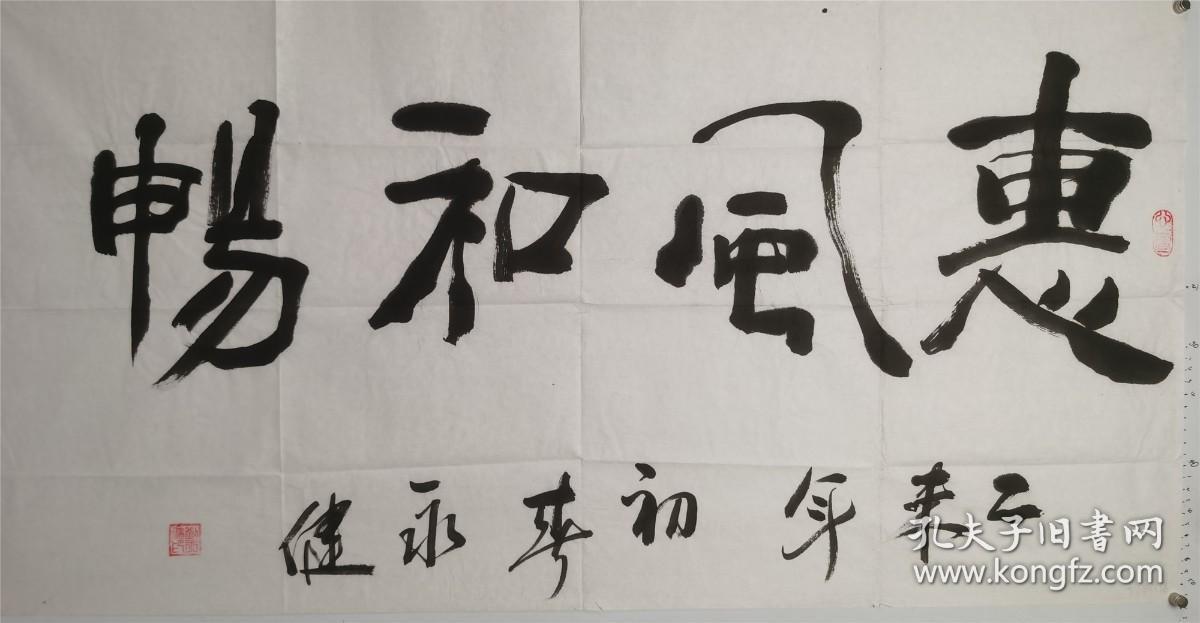 惠風和暢
年初春永健
孔夫子旧书网
www.kongfz.com